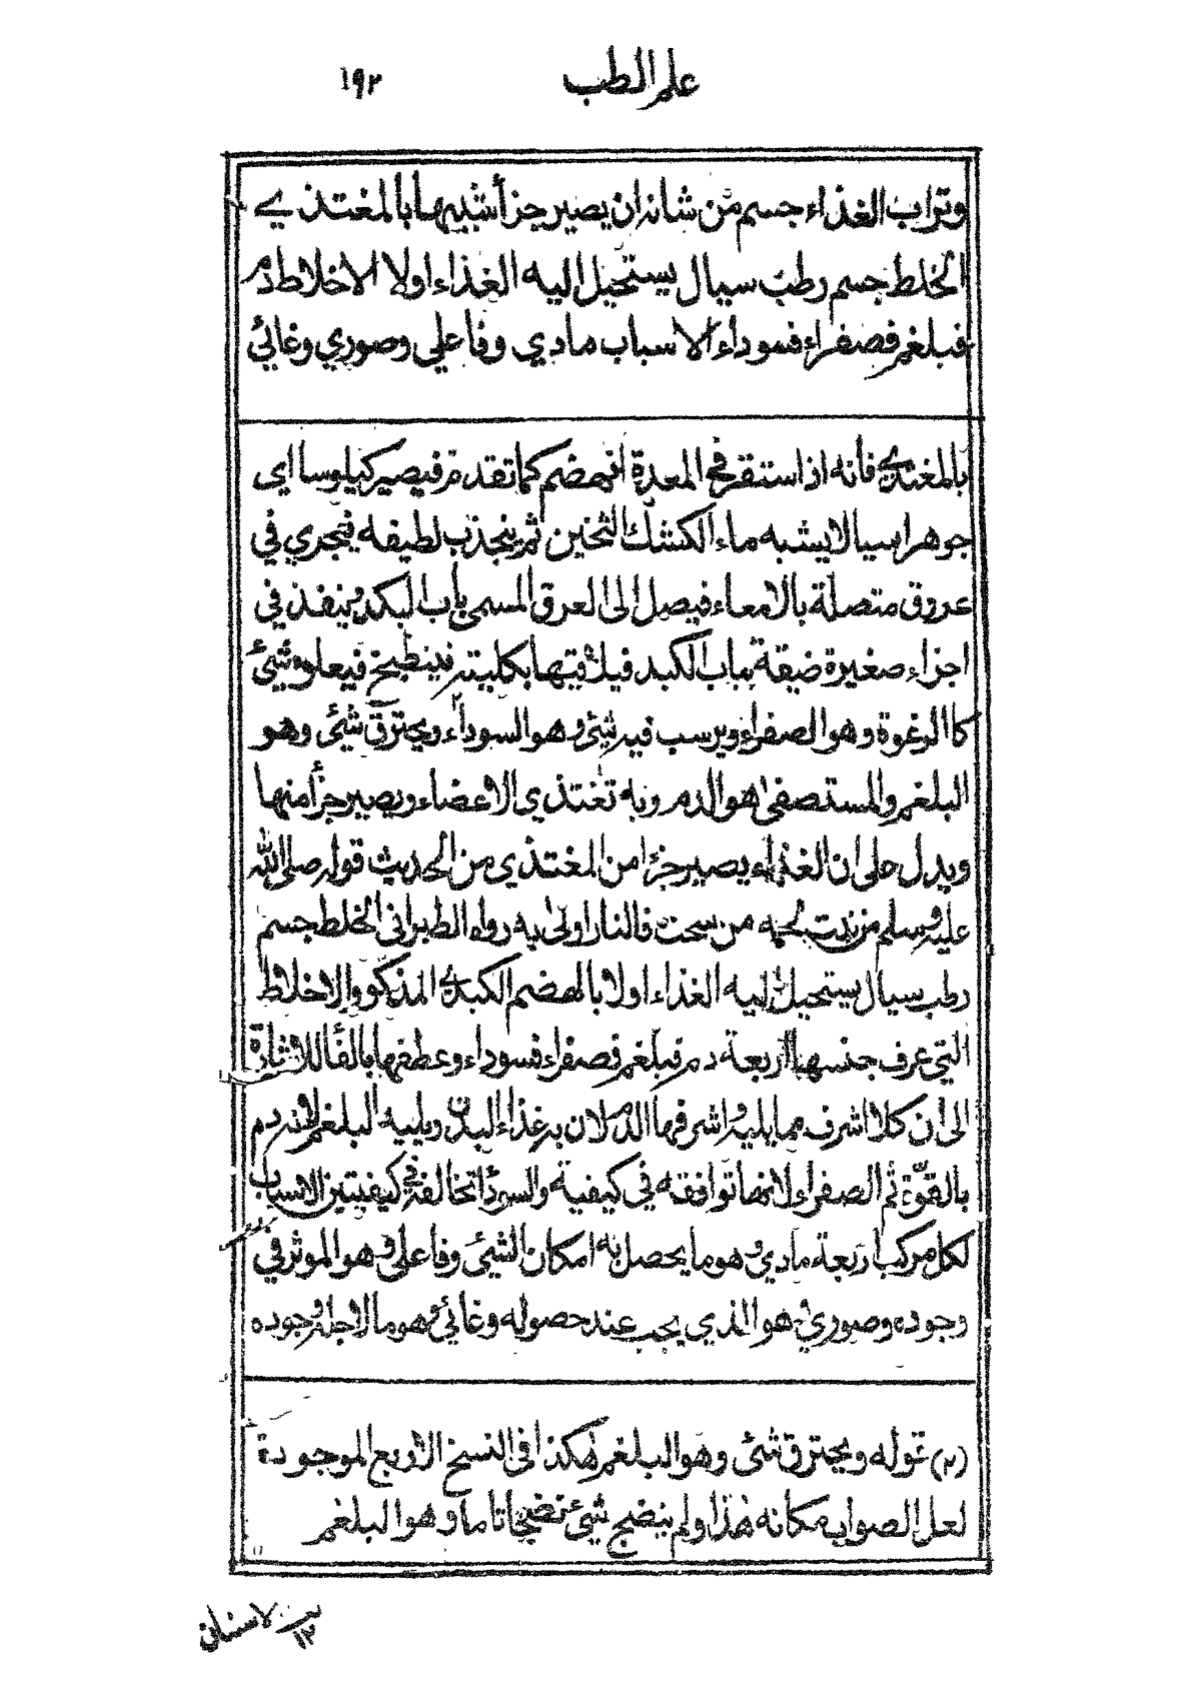 علم الطب ١٩٢
وتراب الغذاء جسم من شانه ان يصير جزأ شبيها بالمغتذي
الخلط جسم رطب سيال يستحيل اليه الغذاء اولا الاخلاط دم
فبلغم فصفراء فسوداء الاسباب مادي وفاعلي وصوري وغائي
بالمغتذي فانه اذا استقر في المعدة انهضم كما تقدم فيصير كيلوسا اي
جوهرا سيالا يشبه ماء الكشك الثخين ثم ينجذب لطيفه فيجري في
عروق متصلة بالامعاء فيصل الى العرق المسمى باب الكبد وينفذ في
اجزاء صغيرة ضيقة بباب الكبد فيلاقيها بكليته فينطبخ فيعلوه شيئ
كالرغوة وهو الصفراء ويرسب فيه شيئ وهو السوداء ويحترق شيئ وهو
البلغم والمستصفى هو الدم وبه تغتذي الاعضاء ويصير جزأ منها
ويدل على ان الغذاء يصير جزءا من المغتذي من الحديث قوله صلى الله
عليه وسلم من نبت لحمه من سحت فالنار اولى به رواه الطبراني الخلط جسم
رطب سيال يستحيل اليه الغذاء اولا بالهضم الكبدي المذكور والاخلاط
التي عرف جنسها اربعة دم فبلغم فصفراء فسوداء وعطفها بالفا للاشارة
الى ان كلا اشرف مما يليه واشرفها الدم لان به غذاء البدن ويليه البلغم لانه دم
بالقوة ثم الصفراء لانها توافقه في كيفية والسوداء تخالفه في كيفيتين الاسباب
لكل مركب اربعة مادي وهو ما يحصل به امكان الشيئ وفاعلي وهو الموثر في
وجوده وصوري وهو الذي يجب عند حصوله وغائي وهو ما لاجله وجوده
(٢) قوله ويحترق شئى وهو البلغم هكذا فى النسخ الاربع الموجودة
لعل الصواب مكانه هذا ولم ينضج شيئ نضجا تاما وهو البلغم
١٢